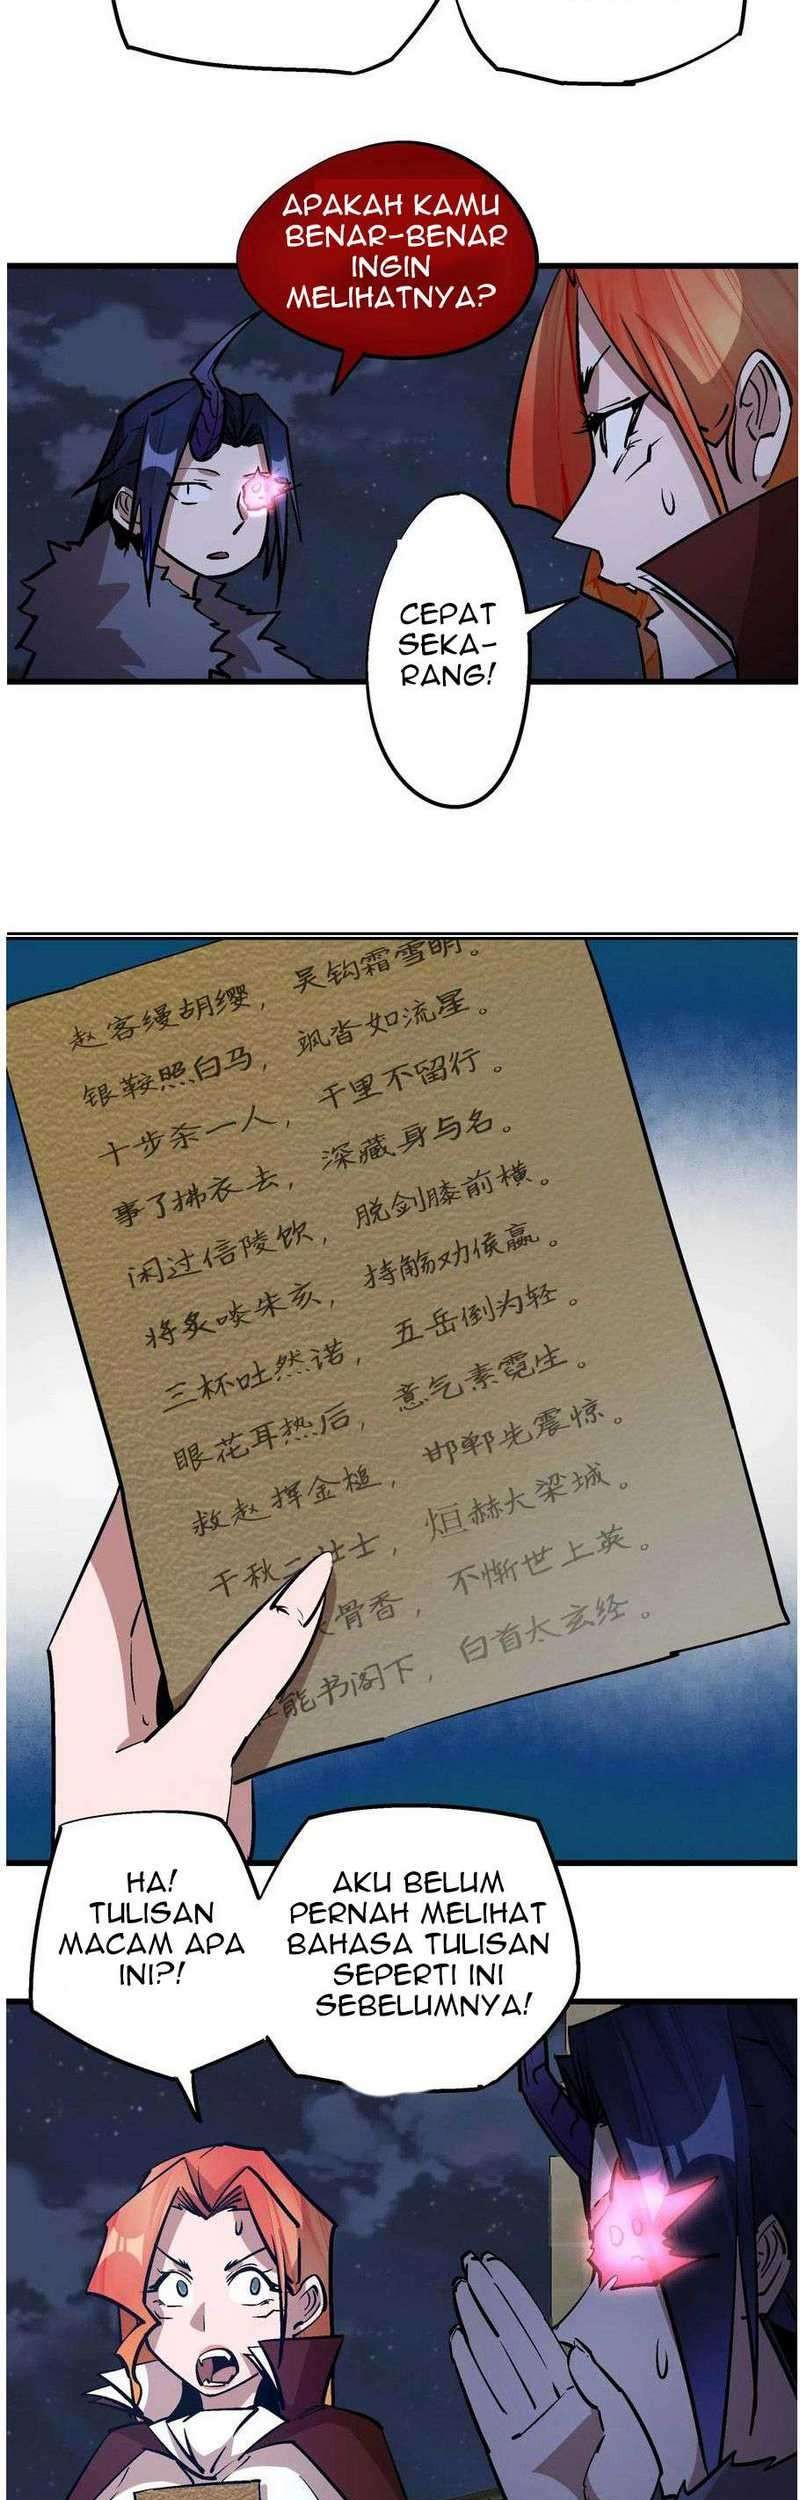 APAKAH KAMU
BENAR-BENAR
INGIN
MELIHATNYA?
CEPAT
SEKA-
RANG!
赵客缦胡缨，吴钩霜雪明。
银鞍照白马，飒沓如流星。
十步杀一人，千里不留行。
事了拂衣去，深藏身与名。
闲过信陵饮，脱剑膝前横。
将炙啖朱亥，持觞劝侯嬴。
三杯吐然诺，五岳倒为轻。
眼花耳热后，意气素霓生。
救赵挥金槌，邯郸先震惊。
千秋二壮士，烜赫大梁城。
骨香，不惭世上英。
能书阁下，白首太玄经。
HA!
TULISAN
MACAM APA
INI?!
AKU BELUM
PERNAH MELIHAT
BAHASA TULISAN
SEPERTI INI
SEBELUMNYA!